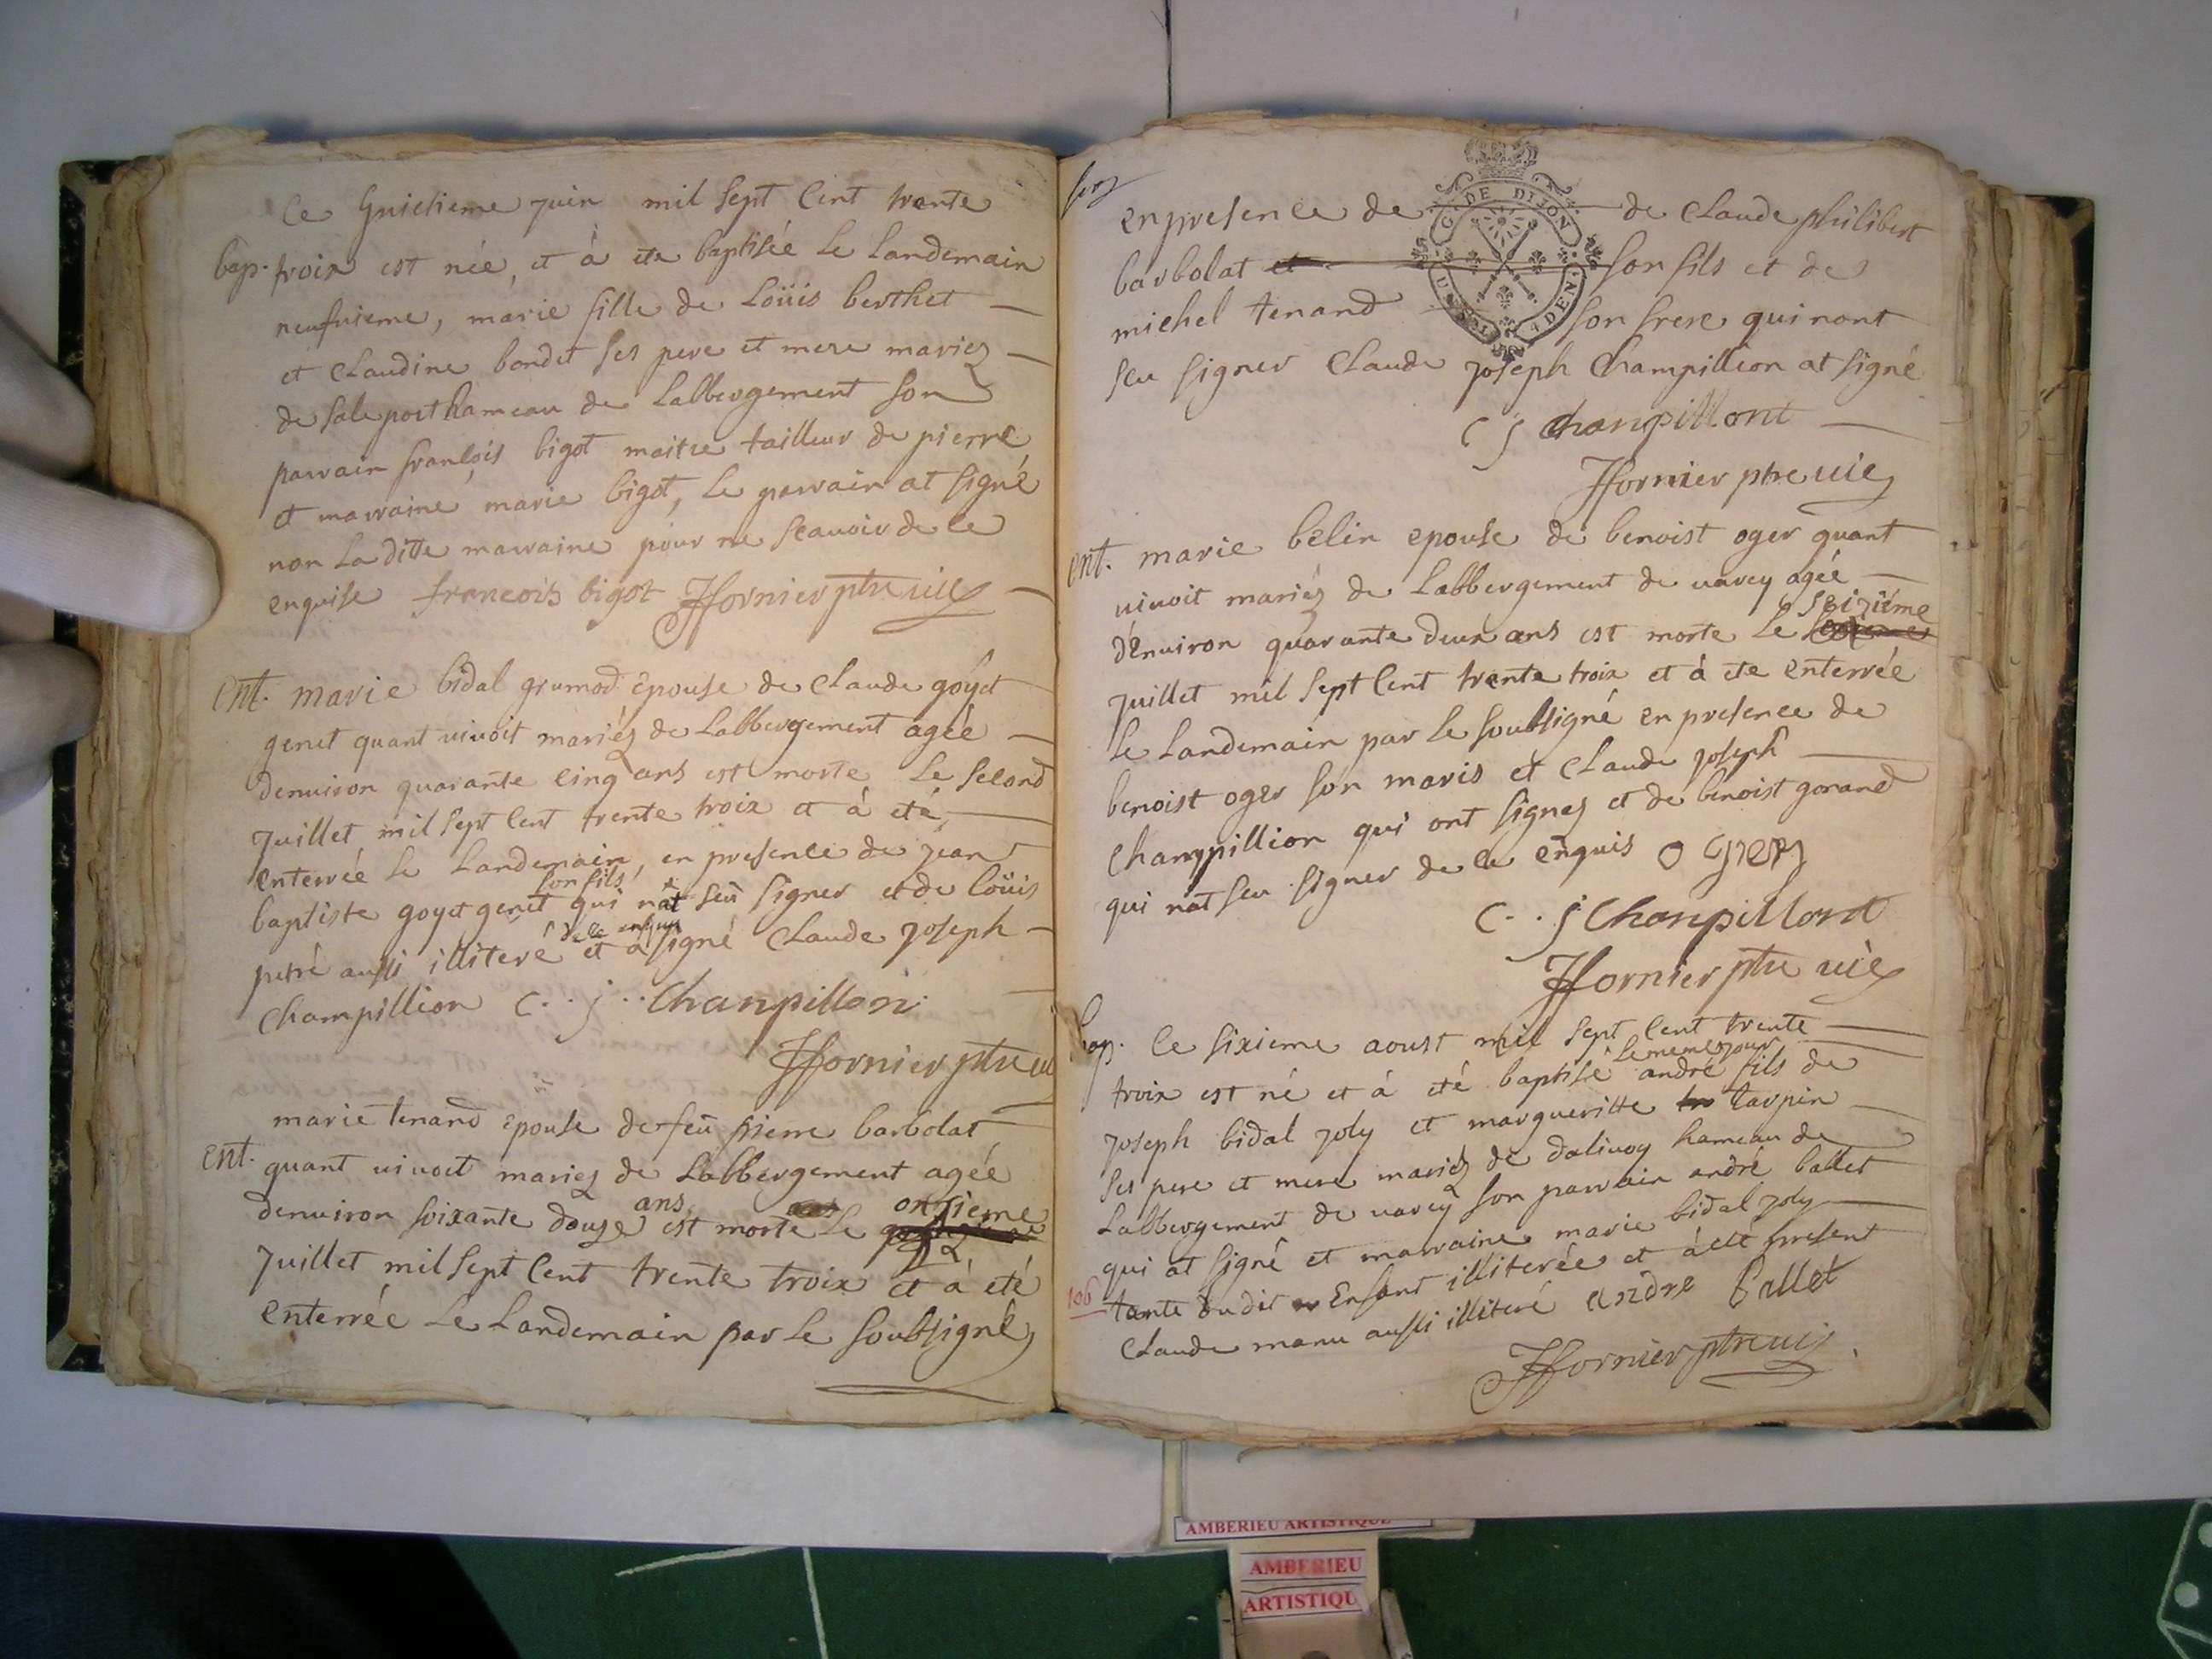 Ce huictieme juin mil sept cent trente
bap. troix est née, et à ete baptisée le landemain
neufuieme, marie fille de Loüis berthet
et Claudine bondet ses pere et mere mariez
de saleport hameau de Labbergement son
parrain francois bigot maitre tailleur de pierre
et marraine marie bigot, le parrain at signé
non la ditte marraine pour ne scauoir de ce
enquise francois bigot JFornier ptre uic
ent. marie bidal grumod epouse de Claude goyet
genet quant uiuoit mariéz de Labbergement agée
denuiron quarante cinq ans est morte le second
Juillet mil sept cent trente troix et à eté
enterrée le landemain, en presence de jean
baptiste goyet genet son fils qui nat seu signer et de loüis
petré aussi illiteré de ce enquis et a signé Claude Joseph
Champillion C.. j.. Chanpillon
JFornier ptre ui
marie tenand epouse de feu pierre barbolat
ent. quant uiuoit mariez de Labbergement agée
denuiron soixante douze ans est morte le onzieme
Juillet mil sept cent trente troix et à eté
enterrée Le Landemain par le soubsigné
en presence de de Claude philibert
G. DE DIJON
4 DEN.
barbolat et son fils et de
michel tenand son frere qui nont
seu signer Claude joseph Champillion at signé
C j Chanpillont
JFornier ptre uic
ent. marie belin epouse de benoist oger quant
uiuoit mariéz de Labbergement de uarey agée
d'enuiron quarante deux ans est morte le seizième
juillet mil sept cent trente troix et à ete enterrée
le landemain par le soubsigné en presence de
benoist oger son maris et Claude joseph
Champillion qui ont signez et de benoist gonand
qui nat seu signer de ce enquis oger
C.. j Chanpillont
JFornier ptre uic
bap. Ce sixieme aoust mil sept cent trente
troix est né et à eté baptisé le meme jour andré fils de
joseph bidal joly et margueritte tarpin
ses pere et mere mariéz de daliuoy hameau de
Labbergement de uarey son parrain andré ballet
qui at signé et marraine marie bidal joly
106 tante dudit Enfant illiterée et à eté present
Claude manu aussi illiteré andre ballet
JFornier ptre uic
AMBERIEU ARTISTIQUE
AMBERIEU
ARTISTIQU